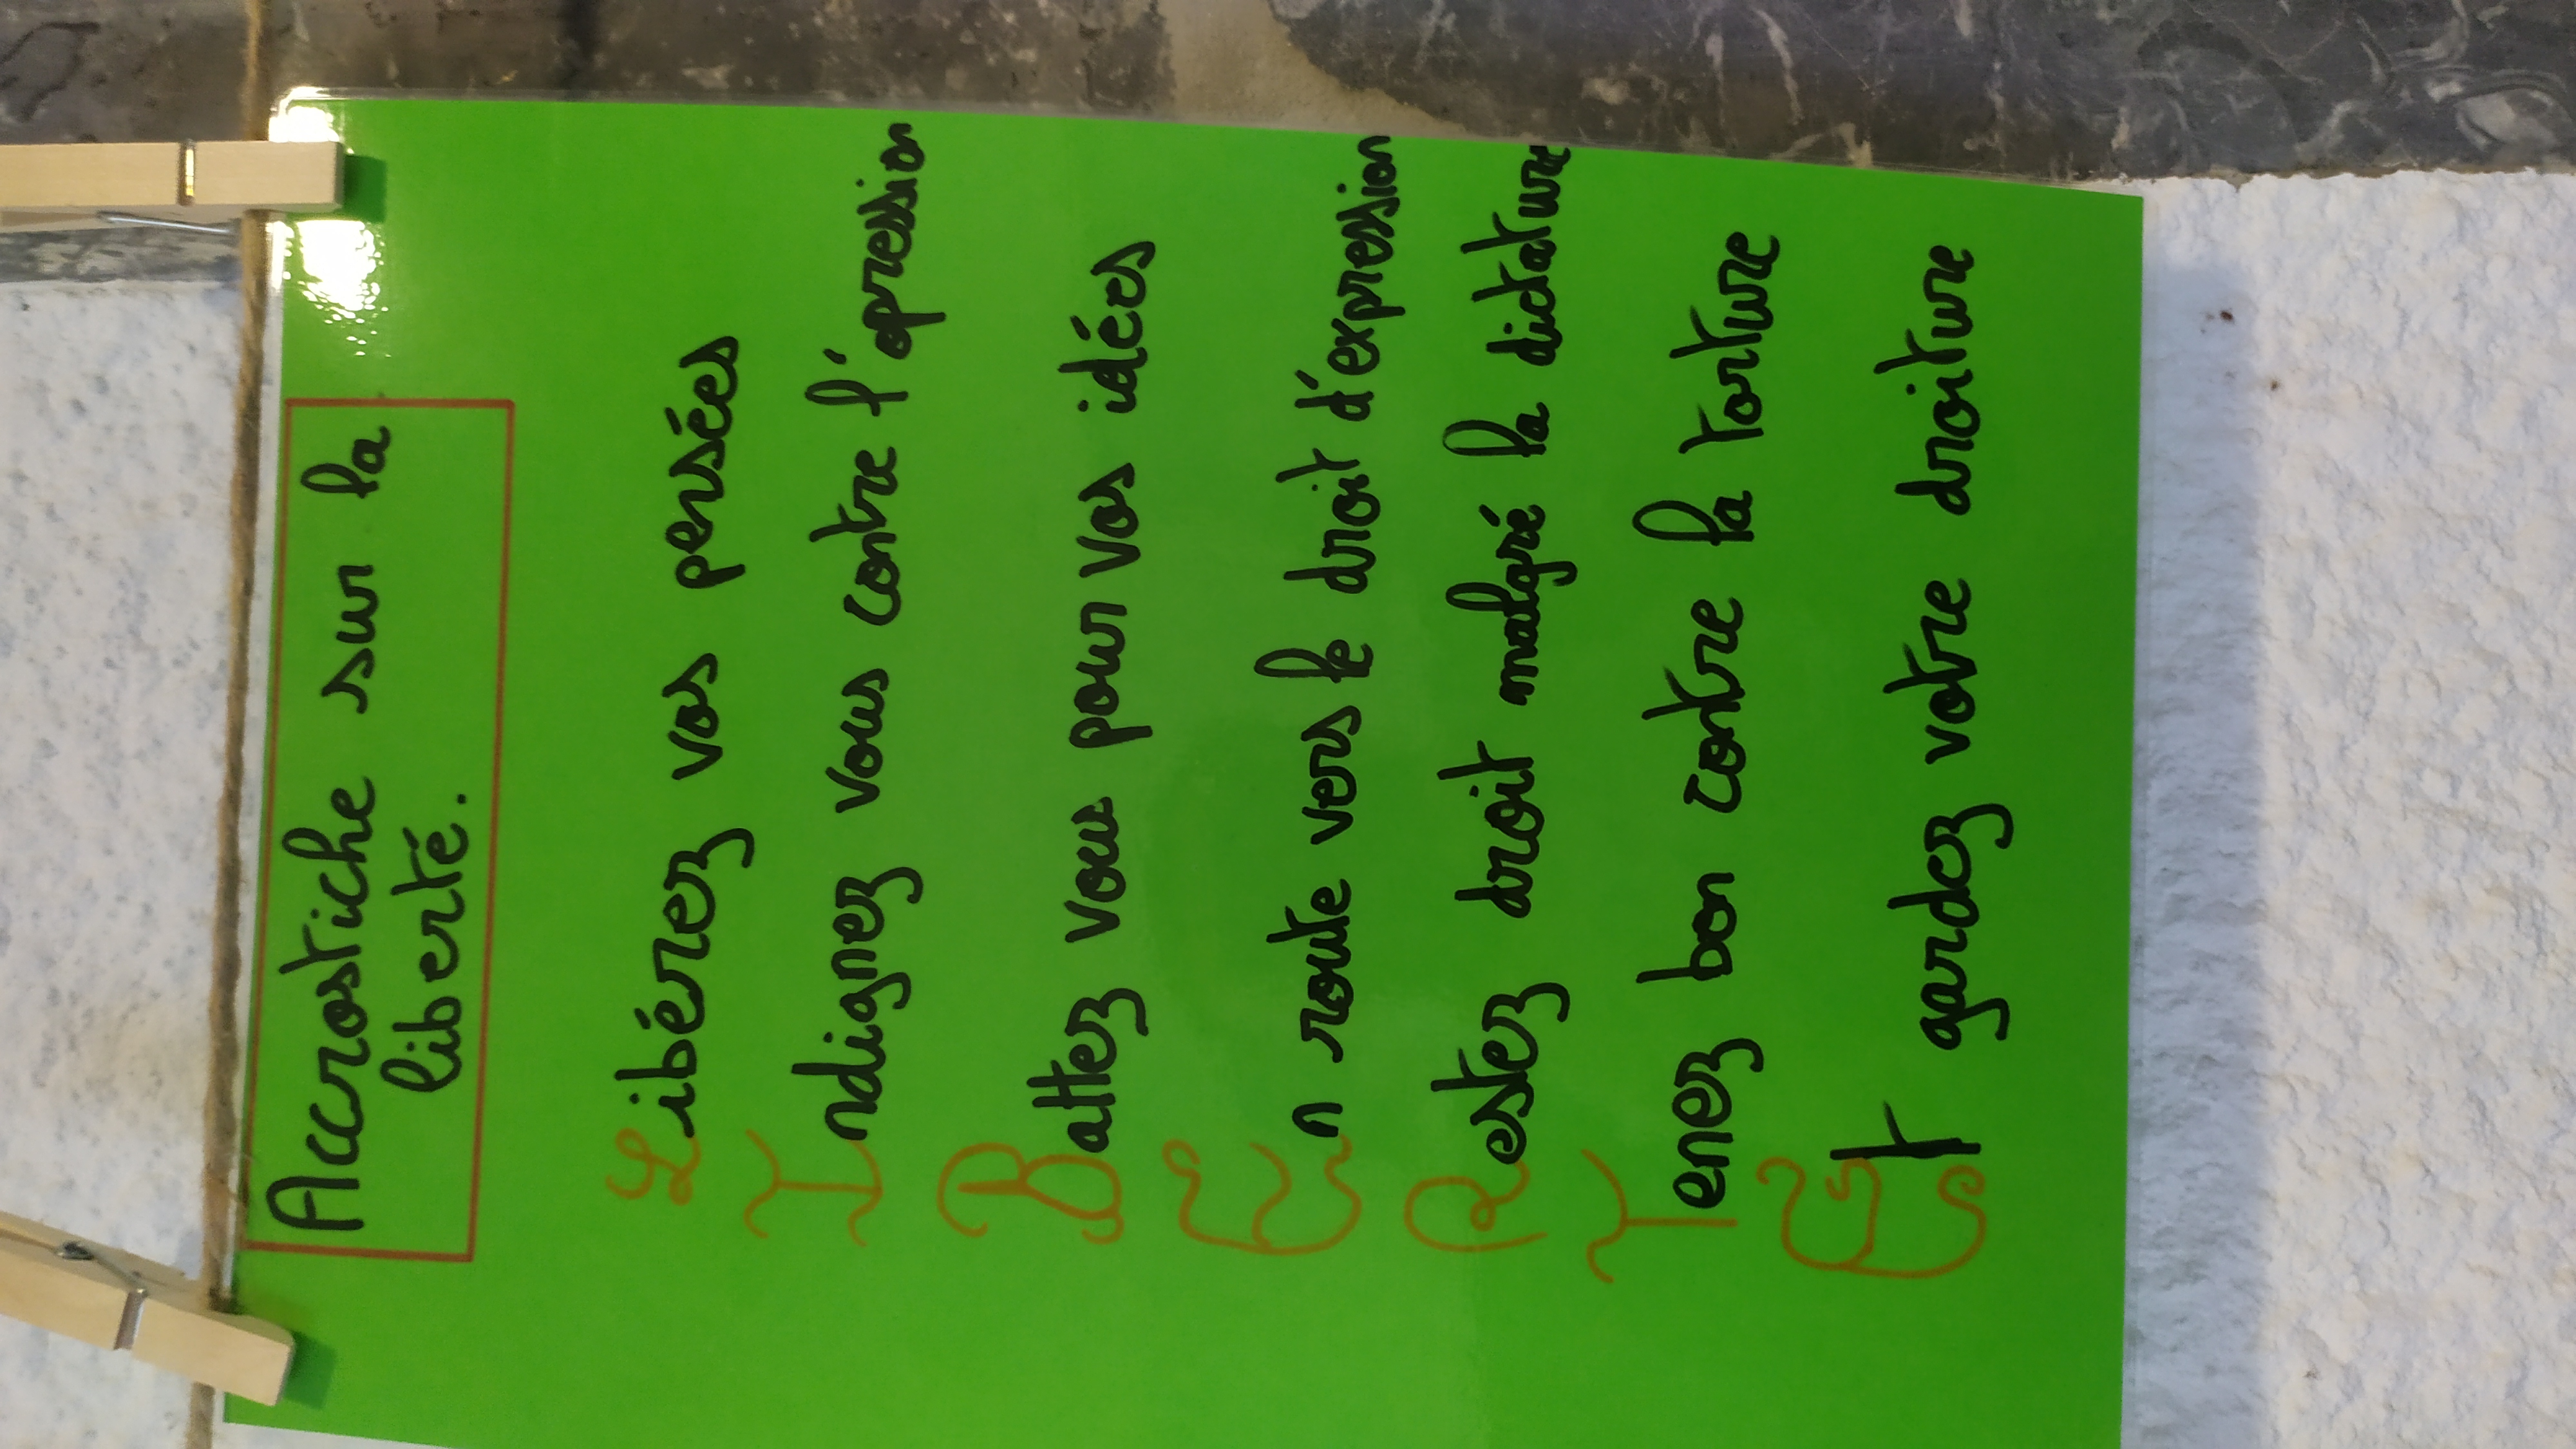 Accrostiche sur la
liberté.
Libérez vos pensées
Indignez vous contre l'opression
Battez vous pour vos idées
En route vers le droit d'expression
Restez droit malgré la dictature
Tenez bon contre la torture
Et gardez votre droiture